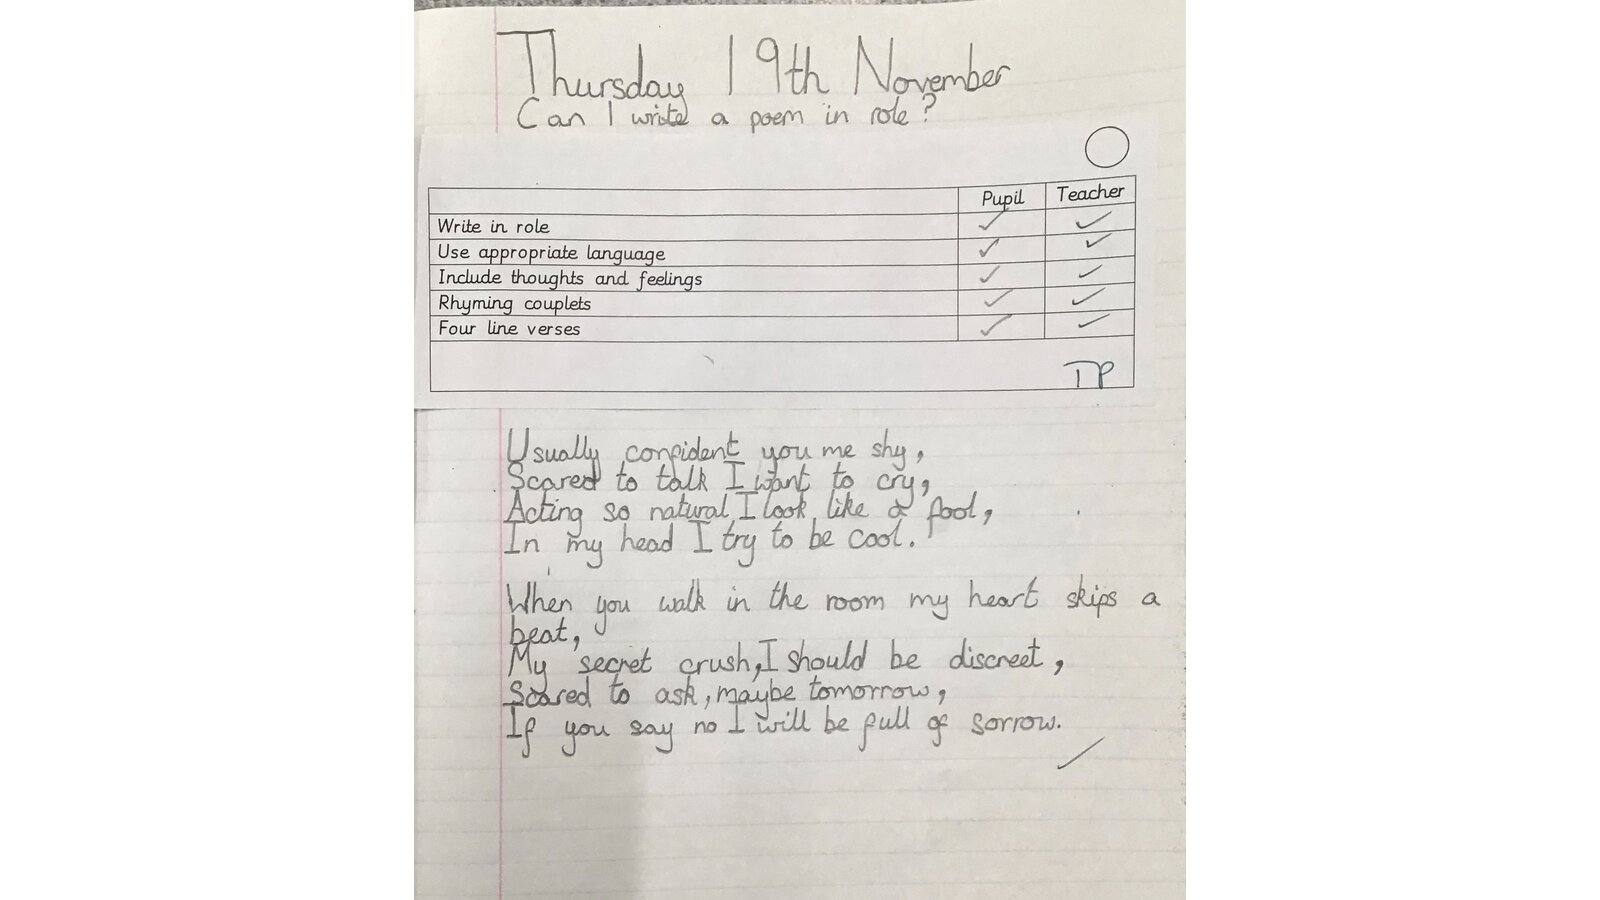 Thursday 19th November
Can I write a poem in role?
Pupil Teacher
Write in role ✓ ✓
Use appropriate language ✓ ✓
Include thoughts and feelings ✓ ✓
Rhyming couplets ✓ ✓
Four line verses ✓ ✓
TP
Usually confident you me shy,
Scared to talk I want to cry,
Acting so natural I look like a fool,
In my head I try to be cool.
When you walk in the room my heart skips a
beat,
My secret crush, I should be discreet,
Scared to ask, maybe tomorrow,
If you say no I will be full of sorrow.
✓